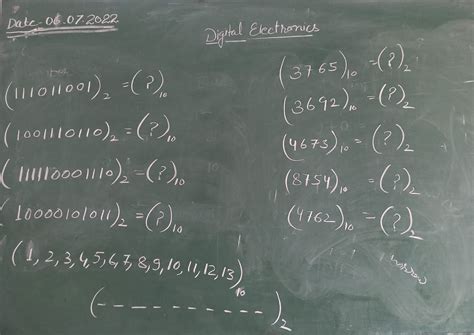 Date - 06.07.2022
Digital Electronics
(111011001)₂ = (?)₁₀
(1001110110)₂ = (?)₁₀
(111110001110)₂ = (?)₁₀
(10000101011)₂ = (?)₁₀
(1,2,3,4,5,6,7,8,9,10,11,12,13)₁₀
(- - - - - - - - - - -)₂
(3765)₁₀ = (?)₂
(3692)₁₀ = (?)₂
(4673)₁₀ = (?)₂
(8754)₁₀ = (?)₂
(4762)₁₀ = (?)₂